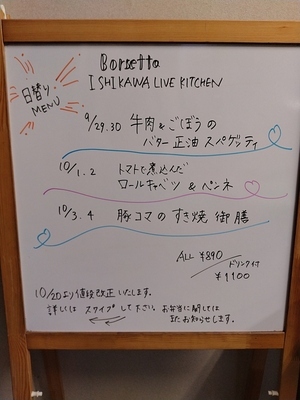 Borsetta
ISHIKAWA LIVE KITCHEN
日替り
MENU
9/29.30 牛肉&ごぼうの
バター正油スパゲッティ
10/1.2 トマトで煮込んだ
ロールキャベツ & ペンネ
10/3.4 豚コマのすき焼御膳
ALL ¥890
ドリンク付
¥1100
10/20より値段改正いたします。
詳しくは スワイプして下さい。
お弁当に関しては
またお知らせします。